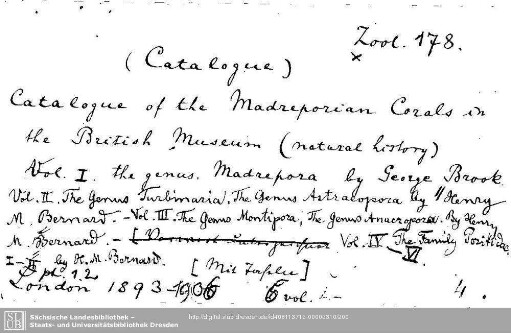 Zool. 178.
(Catalogue)
Catalogue of the Madreporian Corals in
the British Museum (natural history)
Vol. I. the genus. Madrepora by George Brook
Vol. II. The Genus Turbinaria, The Genus Astraeopora by Henry
M. Bernard. - Vol. III. The Genus Montipora, The Genus Anacropora. By Henry
M. Bernard. - Vol. IV The Family Poritidae.
I-II by H. M. Bernard. VI
pt. 1.2. [Mit Tafeln]
London 1893-1906 6 vol. 4.
Sächsische Landesbibliothek –
Staats- und Universitätsbibliothek Dresden